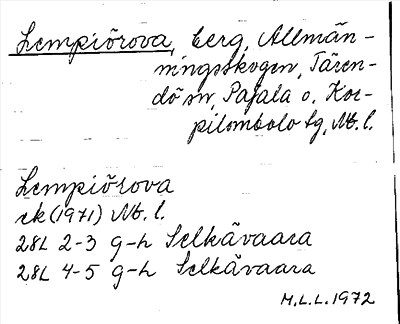 Lempiörova, berg, Allmän-
ningsskogen, Tären-
dö sn, Pajala o. Kor-
pilombolo tg, Nb. l.
Lempiörova
ek (1971) Nb. l.
28L 2-3 g-h Selkävaara
28L 4-5 g-h Selkävaara
M.L.L. 1972